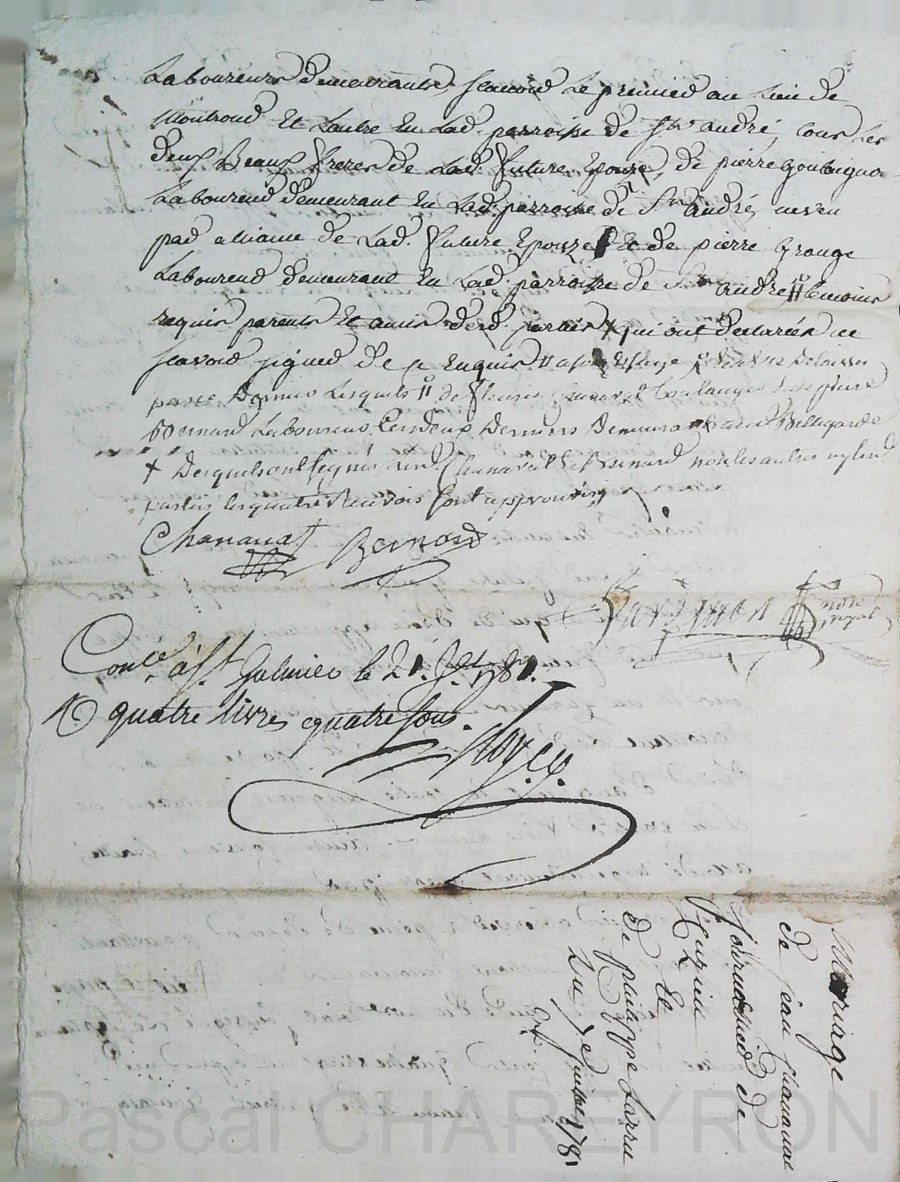 Laboureurs demeurants, scavoir Le premier au lieu de
Montrond Et Lautre En Lad. parroisse de St André, tous les
deux Beaux freres de Lad. future Epouse, de pierre
Laboureur demeurant En Lad. parroisse de St André, neveu
par alliance de Lad. future Epouse Et de pierre Grange
Laboureur demeurant En Lad. parroisse de St andré temoins
requis parents Et amis desd. parties qui ont declarées ne
scavoir signer de ce Enquis
Lesquels de fleurie Chanavat Boulanger
Bernard Laboureur Les deux Derniers Demeurants Bellegarde
+ Desquels ont signés Led. Chanavat et Bernard non les autres ny lesd.
parties les quatre Renvois sont approuvés
Chanavat Bernard
nore
royal
Conlé à St Galmier le 21. Jet 1781.
R quatre livres quatre sous.
Mariage
de jean chanavat
de
fleurie
Et
de philippe
Du 7e Juillet 1781
Exp.
Pascal CHAREYRON